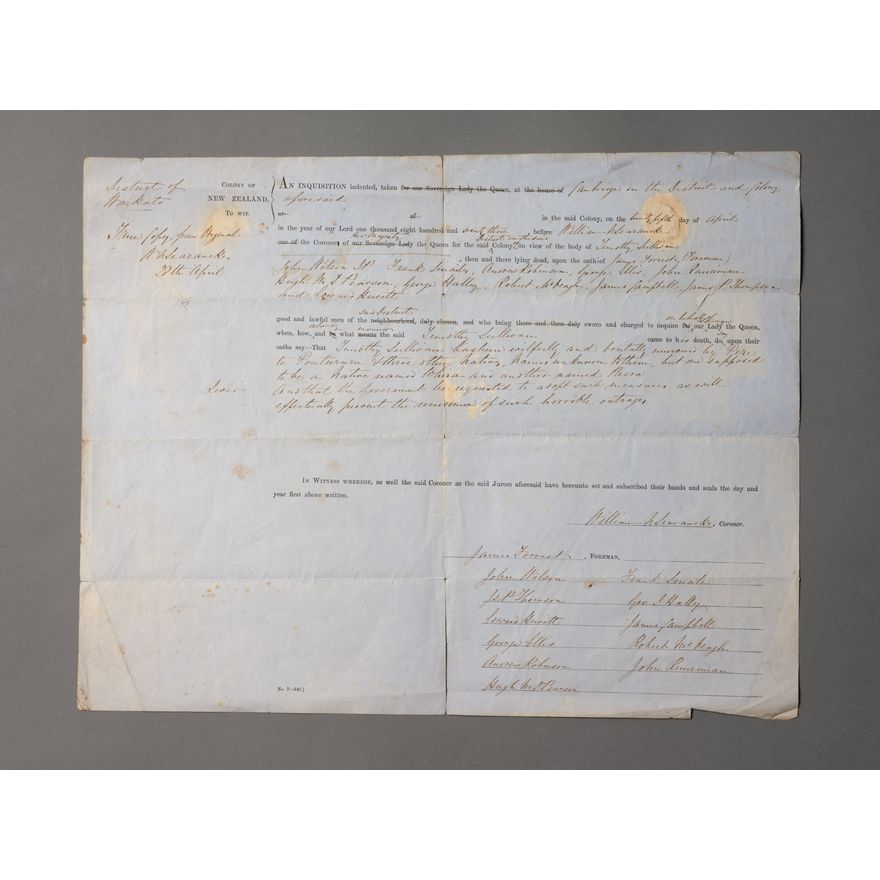 District of
Waikato
True Copy, from Original
W N Searancke,
28th April
COLONY OF
NEW ZEALAND,
TO WIT.
AN INQUISITION indented, taken for our Sovereign Lady the Queen, at the house of Cambridge in the District and Colony
aforesaid
at of in the said Colony, on the twenty fifth day of April
in the year of our Lord one thousand eight hundred and seventy three before William N Searancke
Her Majesty District aforesaid
one of the Coroners of our Sovereign Lady the Queen for the said Colony, on view of the body of Timothy Sullivan
, then and there lying dead, upon the oath of James Forrest, (Foreman)
John Wilson JP Frank Senate, Andrew Robinson, George Ellis, John Runeman
Hugh M. Pearson, George Hally, Robert McVeagh, James Campbell, James P Thompson
and Edward Hewitt
said District on behalf of
good and lawful men of the neighbourhood, duly chosen, and who being there and then duly sworn and charged to inquire for our Lady the Queen,
when, how, and by what means the said Timothy Sullivan came to his death, do, upon their
manner so
oaths say—That Timothy Sullivan hath been wilfully and brutally murdered by
to Pontururu & three other natives, names unknown to them, but one supposed
to be a Native named Whira and another named
And that the Government be requested to adopt such measures as will
effectually prevent the recurrence of such horrible outrages
IN WITNESS WHEREOF, as well the said Coroner as the said Jurors aforesaid have hereunto set and subscribed their hands and seals the day and
year first above written.
William N Searancke, Coroner.
James Forrest, FOREMAN,
John Wilson Frank Senate
J P Thomson Geo I Hally
Edward Hewitt James Campbell
George Ellis Robert McVeagh
Andrew Robinson John Runeman
Hugh M Pearson
No. 7—240]